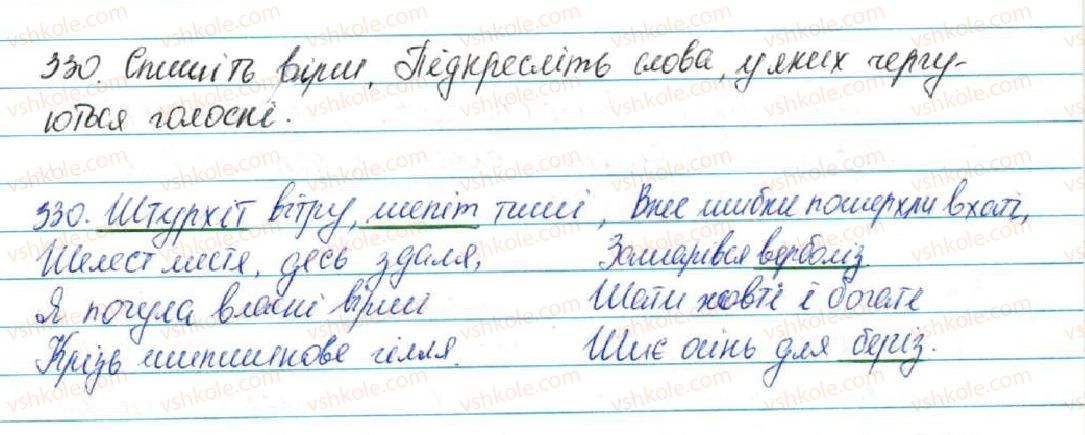 330. Спишіть вірш. Підкресліть слова, у яких чергу-
ються голосні.
330. Штурхіт вітру, шепіт тиші,
Шелест листя, десь здаля,
Я почула власні вірші
Крізь шипшинове гілля.
Вже шибки померхли в хаті,
Захмарився верболіз
Шати жовті й богаті
Шиє осінь для беріз.